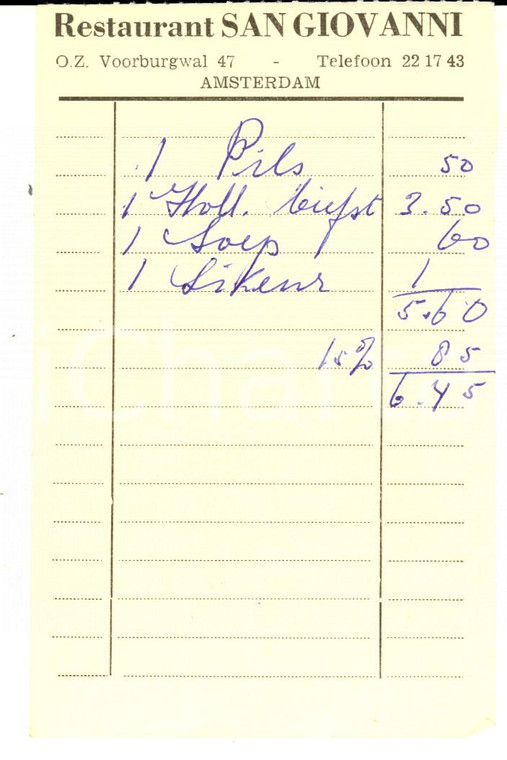 Restaurant SAN GIOVANNI
O.Z. Voorburgwal 47 - Telefoon 22 17 43
AMSTERDAM
1 Pils 50
1 Holl. biefst 3.50
1 Soep 60
1 Likeur 1
5.60
15% 85
6.45